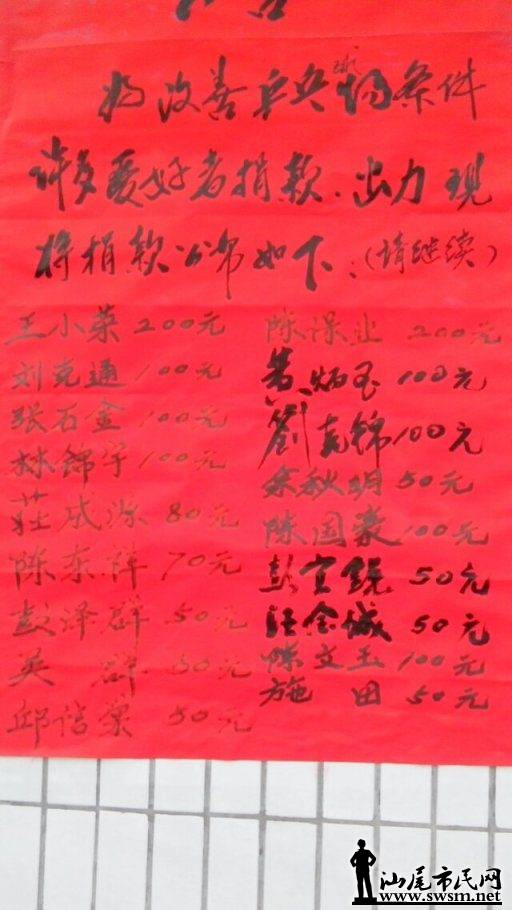 为改善乒乓球场条件
许多爱好者捐款、出力现
将捐款公布如下：（请继续）
王小荣 200元
刘克通 100元
张石金 100元
林锦宇 100元
莊成源 80元
陈东祥 70元
彭泽群 50元
英 群 50元
邱信棠 50元
陈保业 200元
黄炳玉 100元
劉克锦 100元
余秋明 50元
陈国豪 100元
彭宜锐 50元
汪金城 50元
陈文玉 100元
施 田 50元
汕尾市民网
www.swsm.net